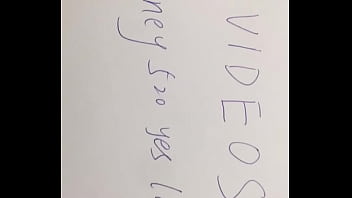 VIDEOS
ney 520 yes